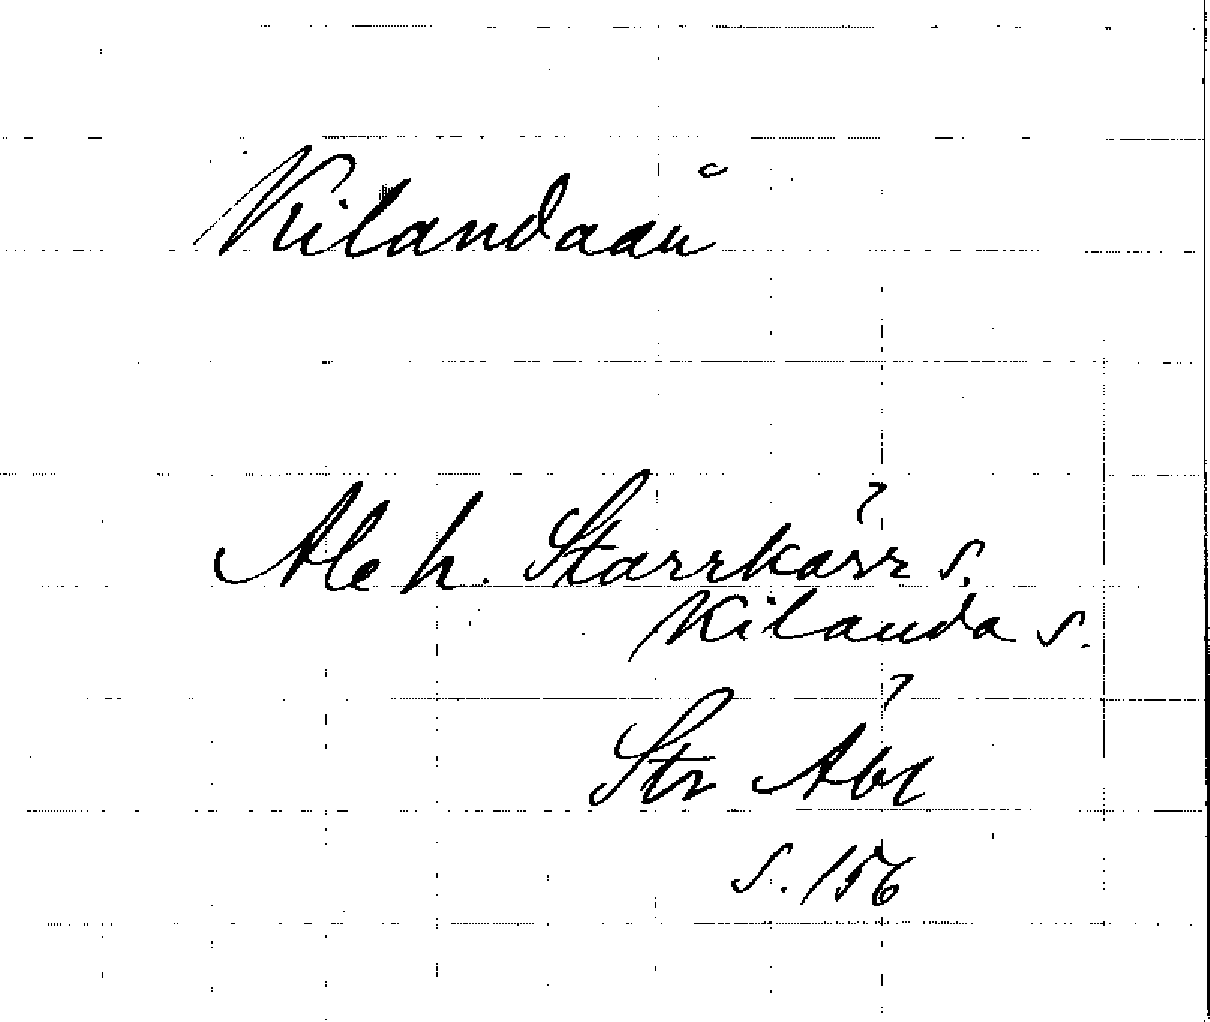 Kilandaån
Ale h. Starrkärr s.
Kilanda s.
Str
s. 156